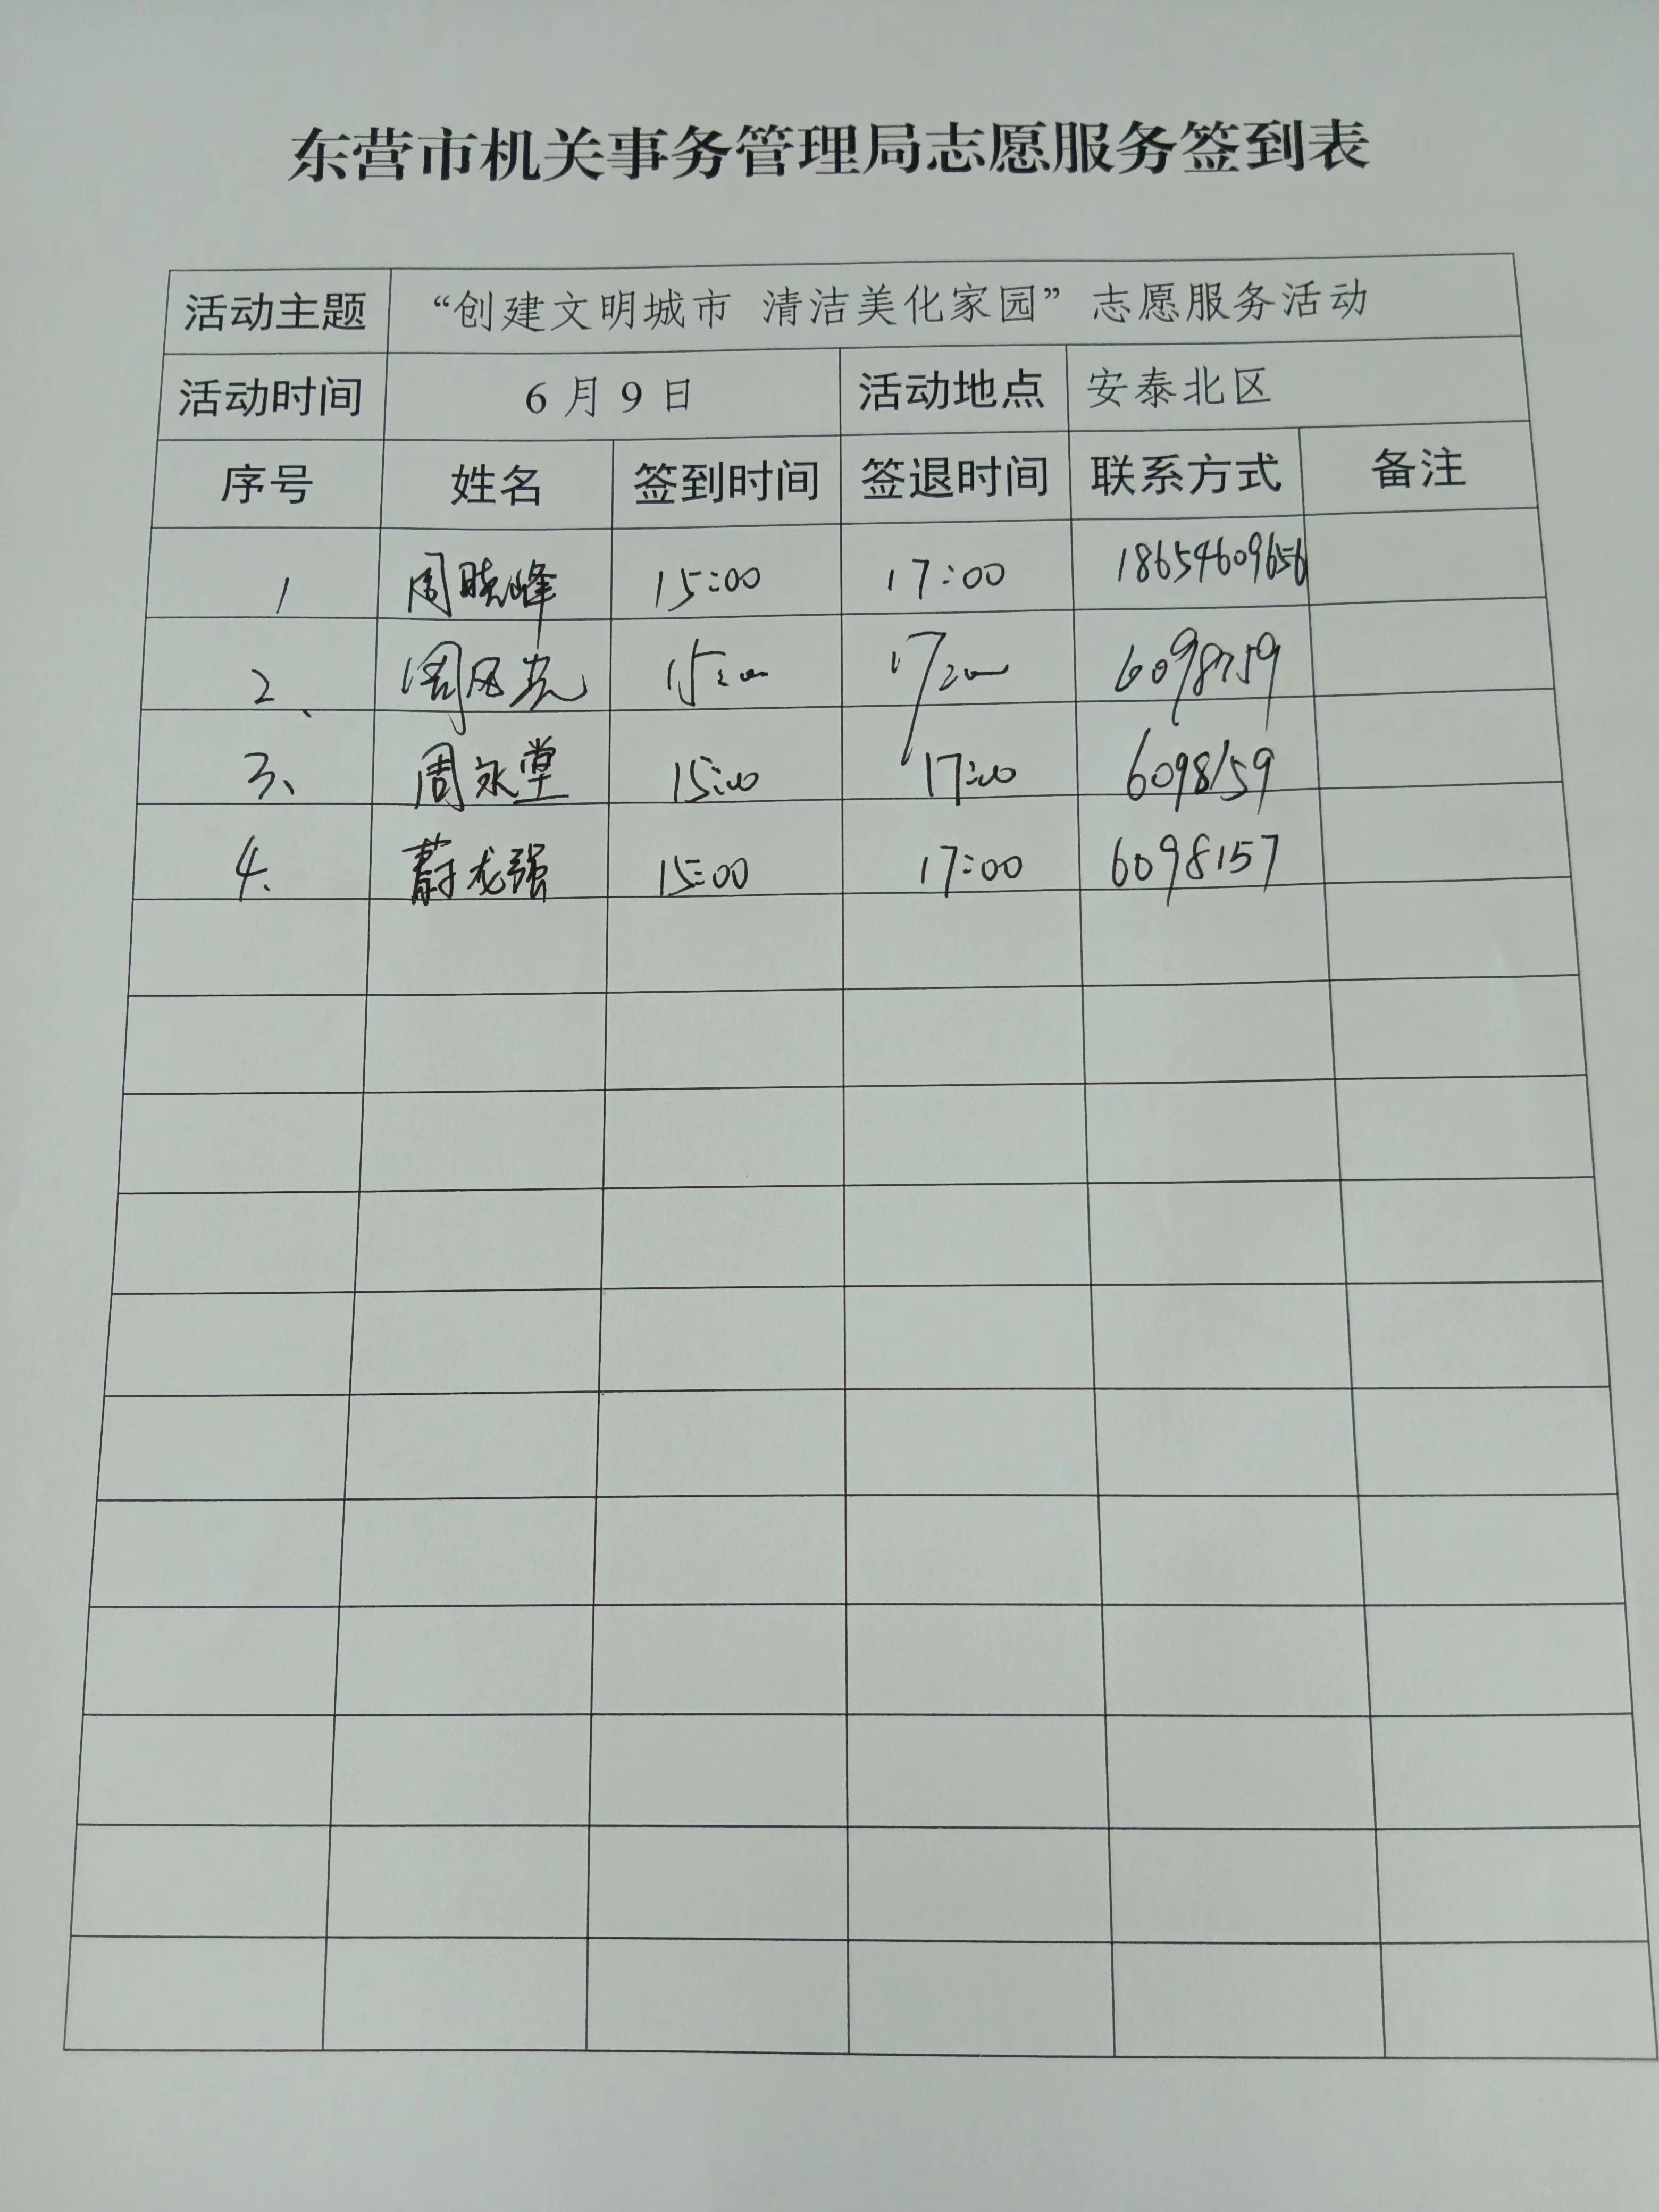 东营市机关事务管理局志愿服务签到表
活动主题 “创建文明城市 清洁美化家园”志愿服务活动
活动时间 6月9日 活动地点 安泰北区
序号 姓名 签到时间 签退时间 联系方式 备注
1 周晓峰 15:00 17:00 18654609656
2、 周风光 15:00 17:00
3、 周永堂 15:00 17:00 6098159
4、 蔚龙强 15:00 17:00 6098157